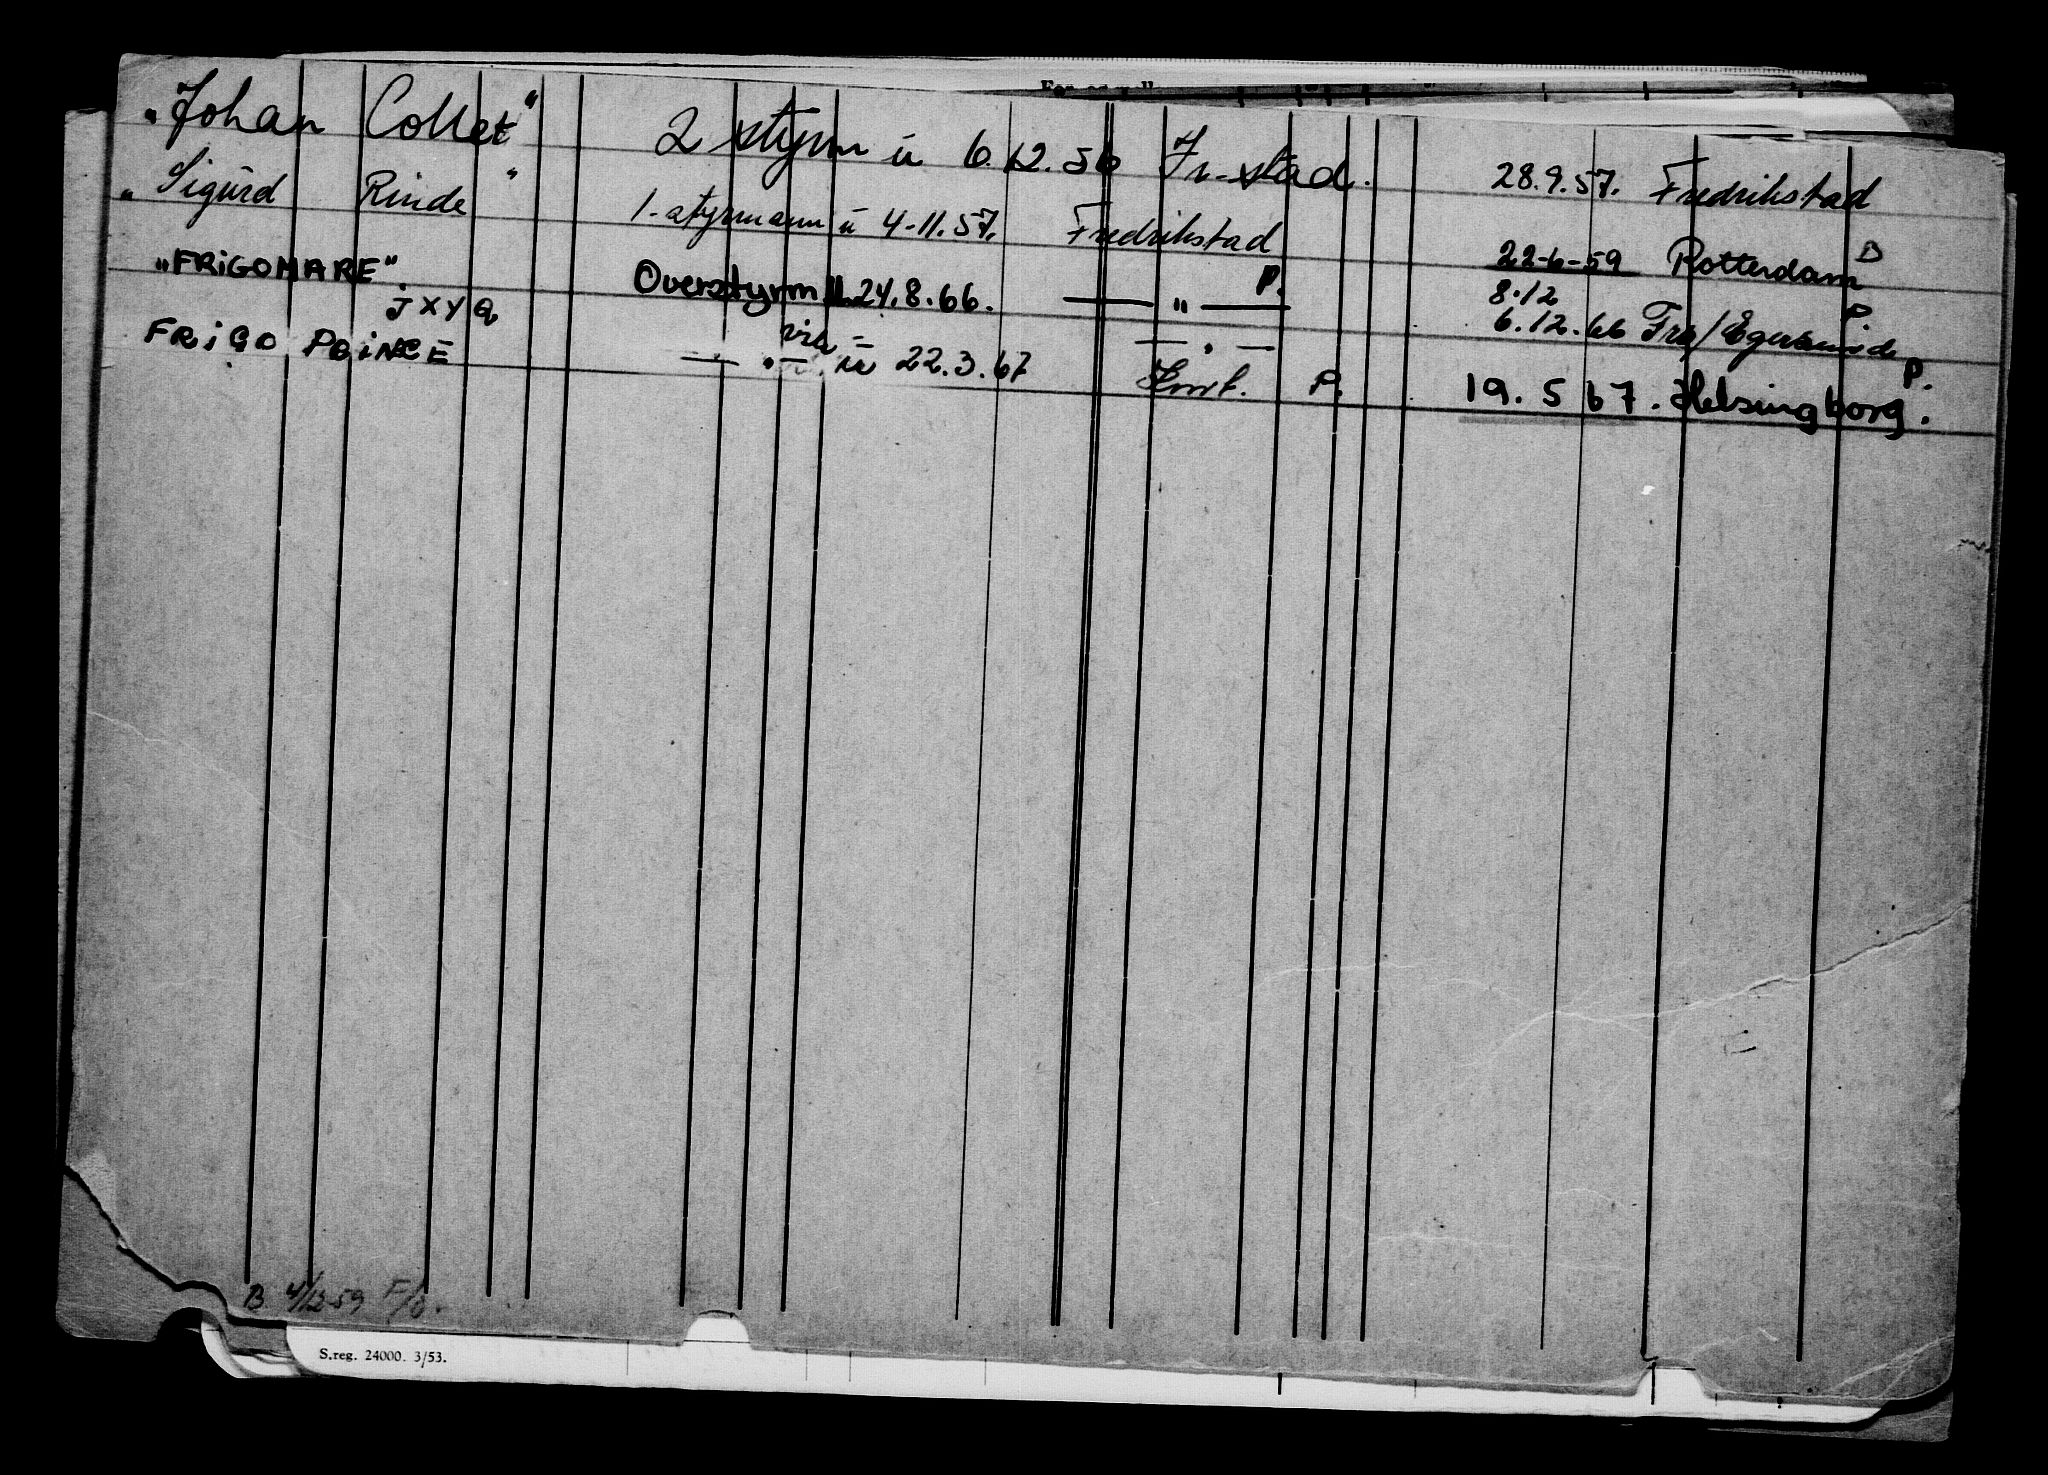 "Johan Collet" 2 styrm u 6.12.56 Fr-stad. 28.9.57. Fredrikstad
"Sigurd Rinde" 1-styrmann u 4-11.57. Fredrikstad 22-6-59 Rotterdam B
"FRIGOMARE" Overstyrm u. 24.8.66. — " — P. 8.12
JXYQ 6.12.66 Fra/Egersund P.
FRIGO PRINCE — " — u 22.3.67 P. 19.5 67. Helsingborg. P.
B 4/12-59
S.reg. 24000. 3/53.